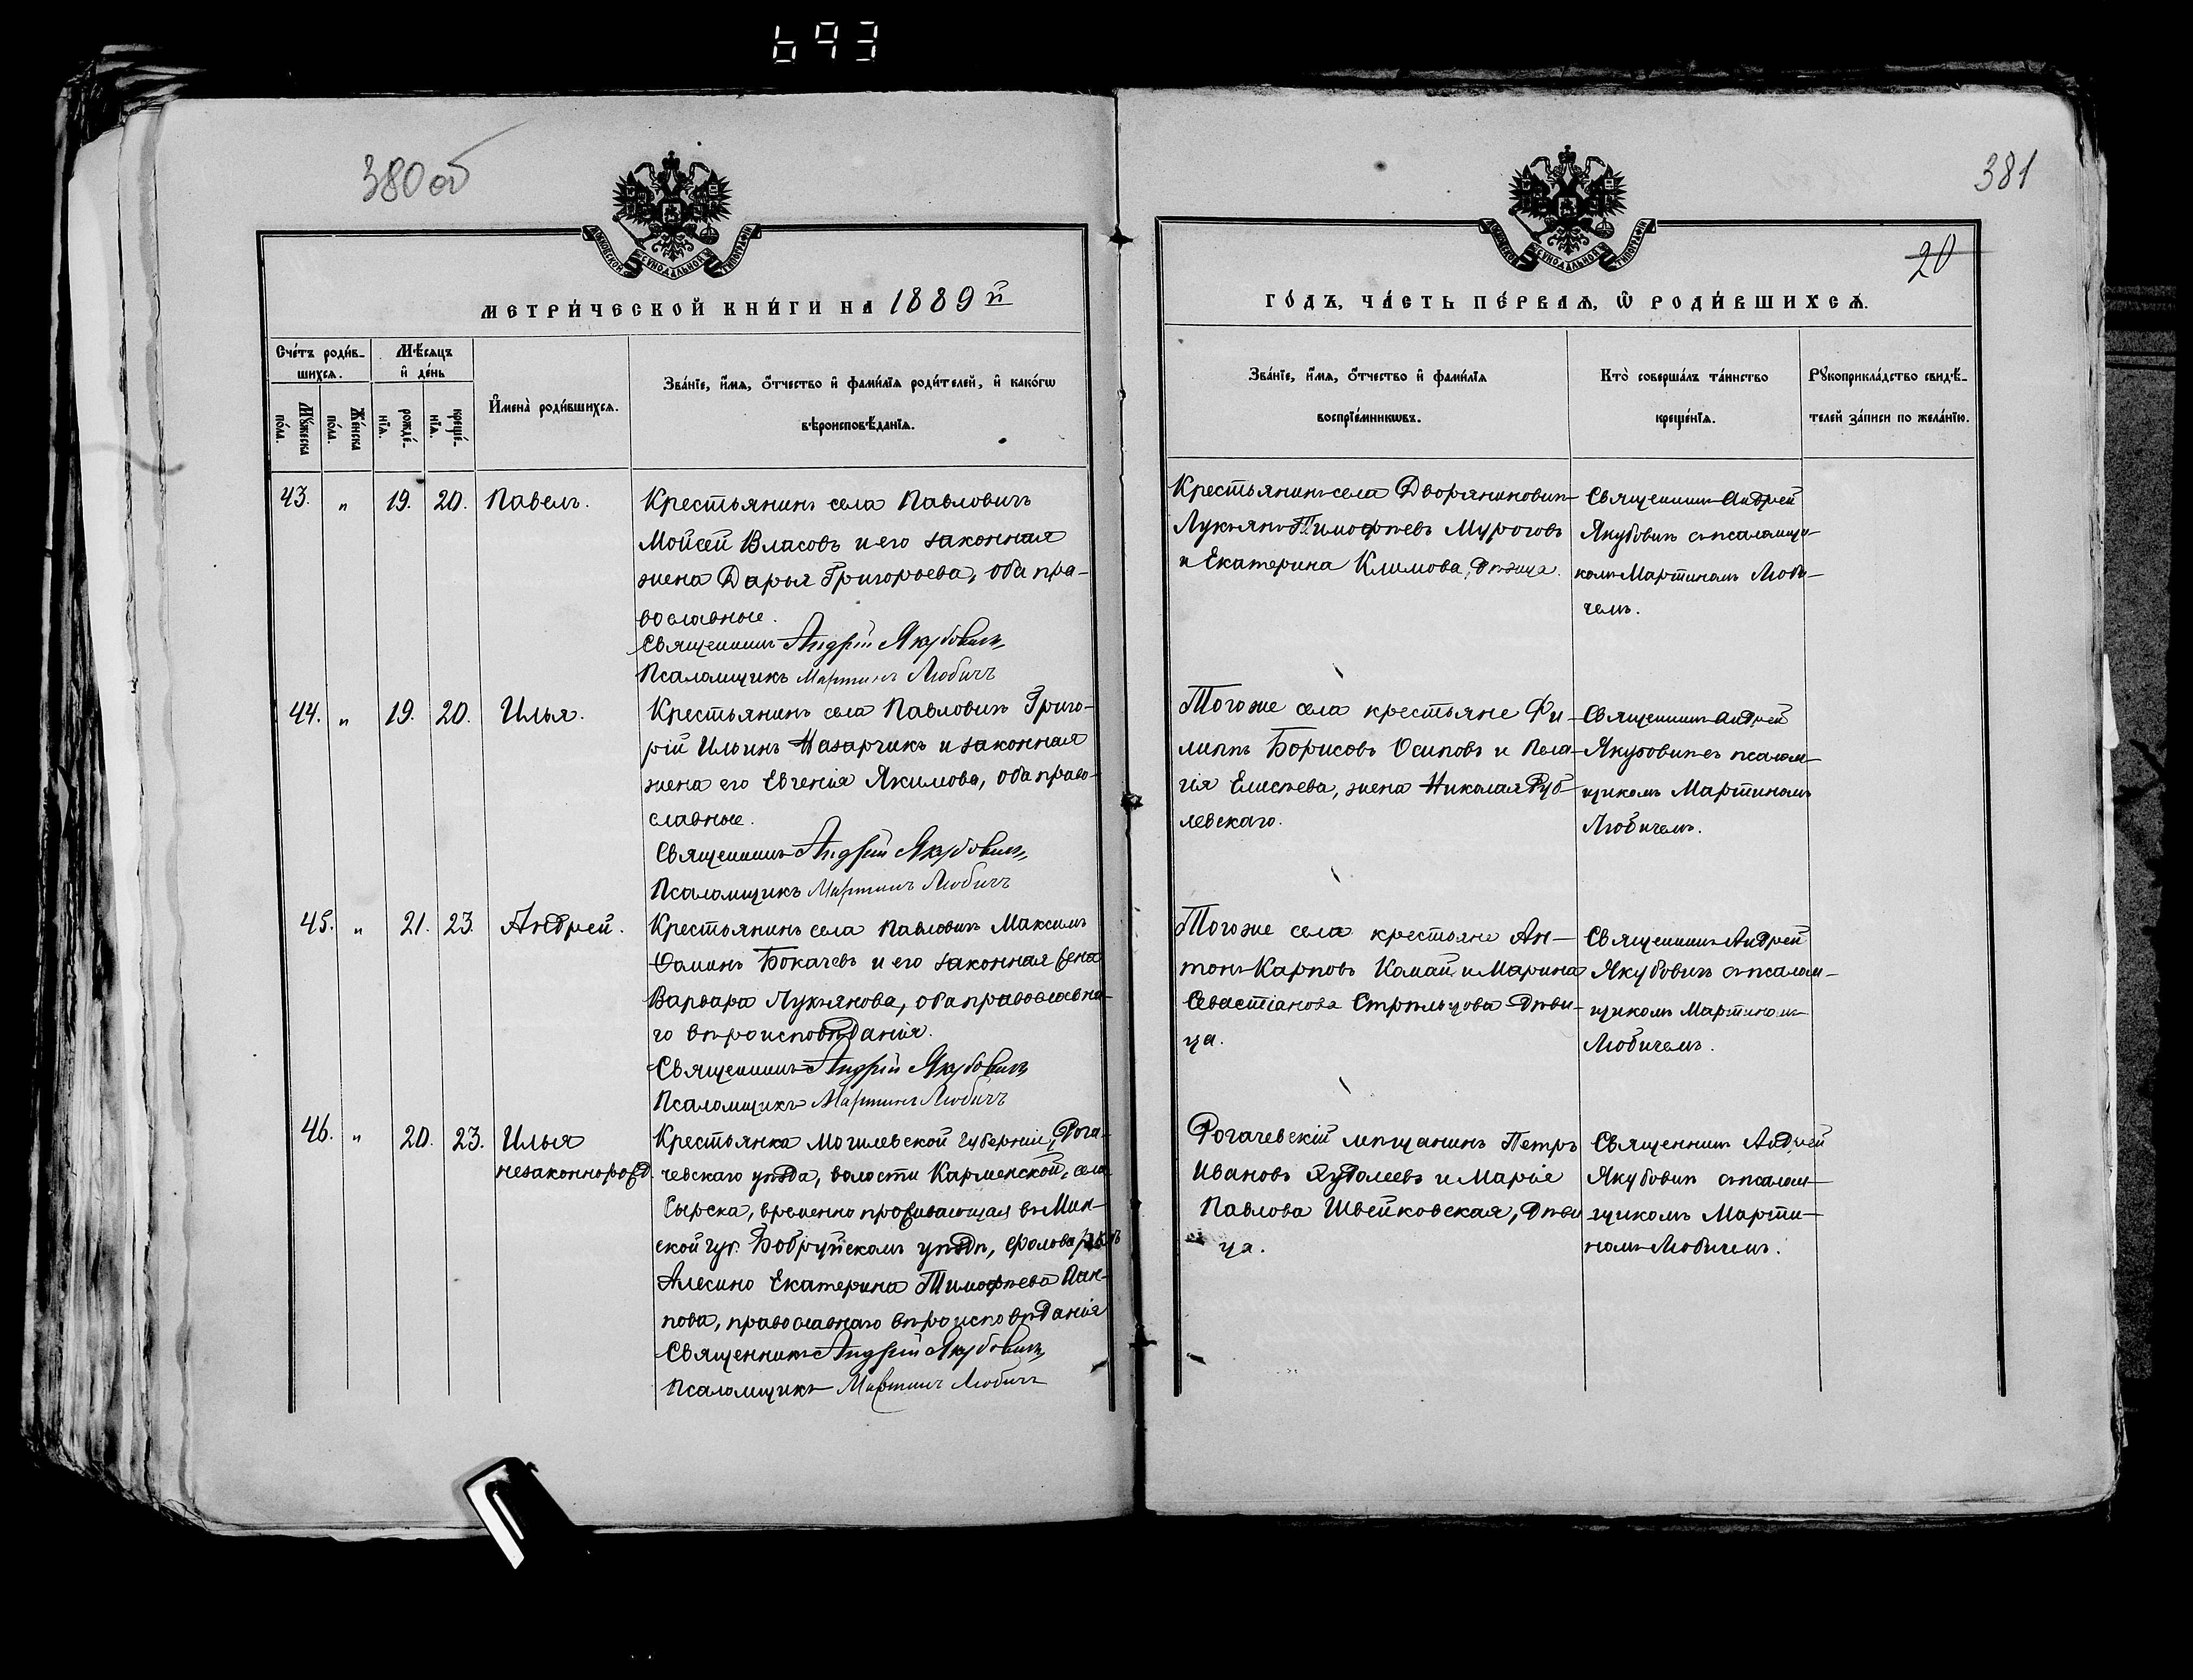 693
380 об
381
20
МОСКОВСКОЙ СѴНОДАЛЬНОЙ ТИПОГРАФІИ
МОСКОВСКОЙ СѴНОДАЛЬНОЙ ТИПОГРАФІИ
МЕТРИ́ЧЕСКОЙ КНИ́ГИ НА 1889й
ГО́ДЪ, ЧА́СТЬ ПЕ́РВАѦ, Ѿ РОДИ́ВШИХСѦ.
Сче́тъ роди́в-
шихсѧ.
Мѣ́сѧцъ
и҆ де́нь
Мꙋ́жеска
по́ла.
Же́нска
по́ла.
рожде́-
нїѧ.
креще́-
нїѧ.
И҆мена̀ роди́вшихсѧ.
Зва́нїе, и҆́мѧ, ѻ҆́тчество и҆ фами́лїѧ роди́телей, и҆ како́гѡ
вѣроисповѣ́данїѧ.
Зва́нїе, и҆́мѧ, ѻ҆́тчество и҆ фами́лїѧ
воспрїе́мникѡвъ.
Кто̀ соверша́лъ та́инство
креще́нїѧ.
Рꙋкоприкла́дство свидѣ́-
телей за́писи по жела́нїю.
43. " 19. 20. Павелъ.
Крестьянинъ села Павловичъ
Мойсей Власовъ и его законная
жена Дарья Григорьева, оба пра-
вославные.
Священникъ Андрей Якубовичъ
Псаломщикъ Мартинъ Любичъ
Крестьянинъ села Дворяниновичъ
Лукьянъ Тимофѣевъ Муроговъ
и Екатерина Климова, дѣвица.
Священникъ Андрей
Якубовичъ съ псаломщи-
комъ Мартиномъ Люби-
чемъ.
44. " 19. 20. Илья.
Крестьянинъ села Павловичъ Григо-
рій Ильинъ Назарчикъ и законная
жена его Евгенія Якимова, оба право-
славные.
Священникъ Андрей Якубовичъ
Псаломщикъ Мартинъ Любичъ
Того же села крестьяне Фи-
липпъ Борисовъ Осиповъ и Пела-
гія Елисѣева, жена Николая Руб-
левскаго.
Священникъ Андрей
Якубовичъ съ псалом-
щикомъ Мартиномъ
Любичемъ.
45. " 21. 23. Андрей.
Крестьянинъ села Павловичъ Максимъ
Ѳоминъ Бокачевъ и его законная жена
Варвара Лукьянова, оба православна-
го вѣроисповѣданія.
Священникъ Андрей Якубовичъ
Псаломщикъ Мартинъ Любичъ
Того же села крестьяне Ан-
тонъ Карповъ Камай и Марина
Севастіанова Стрѣльцова дѣви-
ца.
Священникъ Андрей
Якубовичъ съ псалом-
щикомъ Мартиномъ
Любичемъ.
46. " 20. 23. Илья
незаконнорожд.
Крестьянка Могилевской губерніи, Рога-
чевскаго уѣзда, волости Карменской, села
Сырска, временно проживающая въ Мин-
ской губ. Бобруйскомъ уѣздѣ,
Алесино Екатерина Тимофѣева Пан-
пова, православнаго вѣроисповѣданія
Священникъ Андрей Якубовичъ
Псаломщикъ Мартинъ Любичъ
Рогачевскій мѣщанинъ Петръ
Ивановъ и Марія
Павлова Швейковская, дѣви
ца.
Священникъ Андрей
Якубовичъ съ псалом-
щикомъ Марти-
номъ Любичемъ.